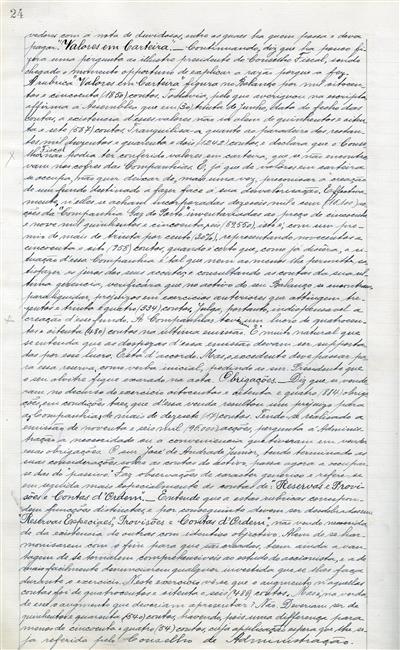 24
vedores com a nota de duvidosos, entre os quaes ha quem possa e deva
pagar. "Valores em Carteira". — Continuando, diz que ha pouco fi-
zera uma pergunta ao illustre presidente do Conselho Fiscal, sendo
chegado o momento opportuno de explicar a razão porque a fez.
A rubrica "Valores em Carteira" figura no Balanço por mil oitocen-
tos e cincoenta (1850) contos. Todavia, pelo que averiguou na escripta
affirma á Assembléa que em (30) trinta de Junho, data do fecho das
contas, a existencia d'esses valores não ia alem de quinhentos e oiten-
ta e sete (587) contos. Tranquilisa-o quanto ao paradeiro dos restan-
tes mil duzentos e quarenta e dois (1242) contos, e declara que o Conse-
lho Fiscal não podia ter conferido valores em carteira, que se não encontra-
vam nos cofres da Companhia. E, já que de valores em carteira
se occupa, não quer deixar de, mais uma vez, preconisar a creação
de um fundo destinado a fazer face á sua desvalorisação. Effectiva-
mente, n'elles se acham incorporadas dezeseis mil e cem (16.100) ac-
ções da Companhia Gaz do Porto inventariadas ao preço de cincoenta
e nove mil quinhentos e cincoenta reis (59550), isto é, com um pre-
mio de mais de trinta por cento (30%), representando novecentos e
cincoenta e oito (958) contos, quando é certo que, como já disséra, a si-
tuação d'essa Companhia é tal que nem ao menos lhe permitte sa-
tisfazer os juros das suas acções, e consultando as contas da sua ul-
tima gerencia, verificára que no activo do seu Balanço se encontram,
para liquidar, prejuizos em exercicios anteriores que attingem tre-
zentos e trinta e quatro (334) contos. Julga, portanto, indispensavel a
creação d'esse fundo. A Companhia teve um agio de quatrocen-
tos e oitenta (480) contos na ultima emissão. É muito natural que
se entenda que as despezas d'essa emissão devam ser supporta-
das por esse lucro. Está d'accordo. Mas, o excedente deve passar pa-
ra essa reserva, como verba inicial, pedindo ao snr. Presidente que
o seu alvitre fique exarado na acta. Obrigações. — Diz que se vende-
ram no decurso do exercicio oitocentas e oitenta e quatro (884) obriga-
ções, em condições taes, que d'essa venda resultou um prejuizo para
a Companhia, de mais de dezesete (17) contos. Tendo-se realisado a
emissão de noventa e seis mil (96.000) acções, pergunta á Adminis-
tração a necessidade ou a conveniencia que tiveram em vender
essas obrigações. O snr. José de Andrade Junior, tendo terminado as
suas considerações sobre as contas do activo, passa agora a occupar-
se das do passivo. Faz observações de caracter generico e refere-se
em seguida mais especialmente ás contas de "Reservas e Provi-
sões e Contas d'Ordem". — Entende que a estas rubricas correspon-
dem funcções distinctas, e por conseguinte devem ser desdobradas em
Reservas Especiaes, Provisões e Contas d'Ordem, não vendo necessida-
de da existencia de outras com identico objectivo. Alem de se har-
monisarem com o fim para que são creadas, teem ainda a van-
tagem de se tornarem comprehensiveis ao estudo do accionista, e a de
mais facilmente denunciarem qualquer investida que se lhes faça
durante o exercicio. Neste exercicio vê-se que o augmento n'aquellas
contas foi de quatrocentos e oitenta e seis (486) contos. Mas, na verda-
de era o augmento que deveriam apresentar? Não. Deveriam ser de
quinhentos e quarenta (540) contos, havendo, pois, uma differença para
menos de cincoenta e quatro (54) contos, cuja applicação espera que lhe se-
ja referida pelo Conselho de Administração.